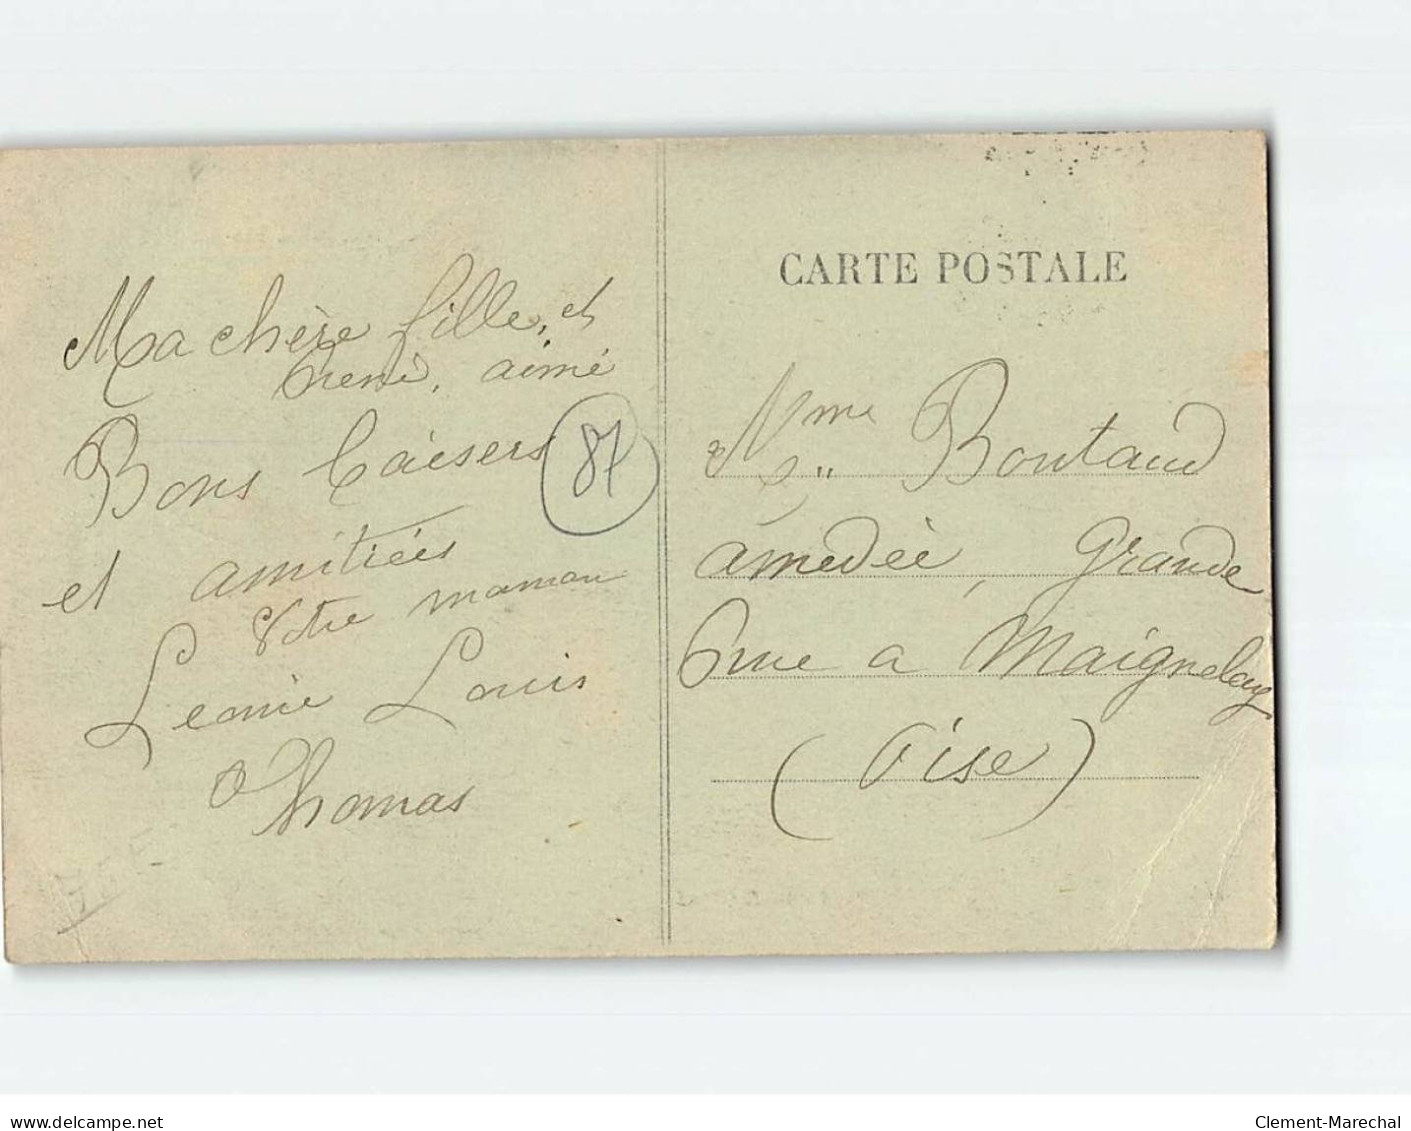 CARTE POSTALE
Ma chère fille, et
René, aimé
Bons Baisers
87
et amitiées
Votre maman
Leonie Louis
Thomas
Mme Boutaud
amedée, Grande
Rue a Maignelay
(Oise)
www.delcampe.net
Clement-Marechal